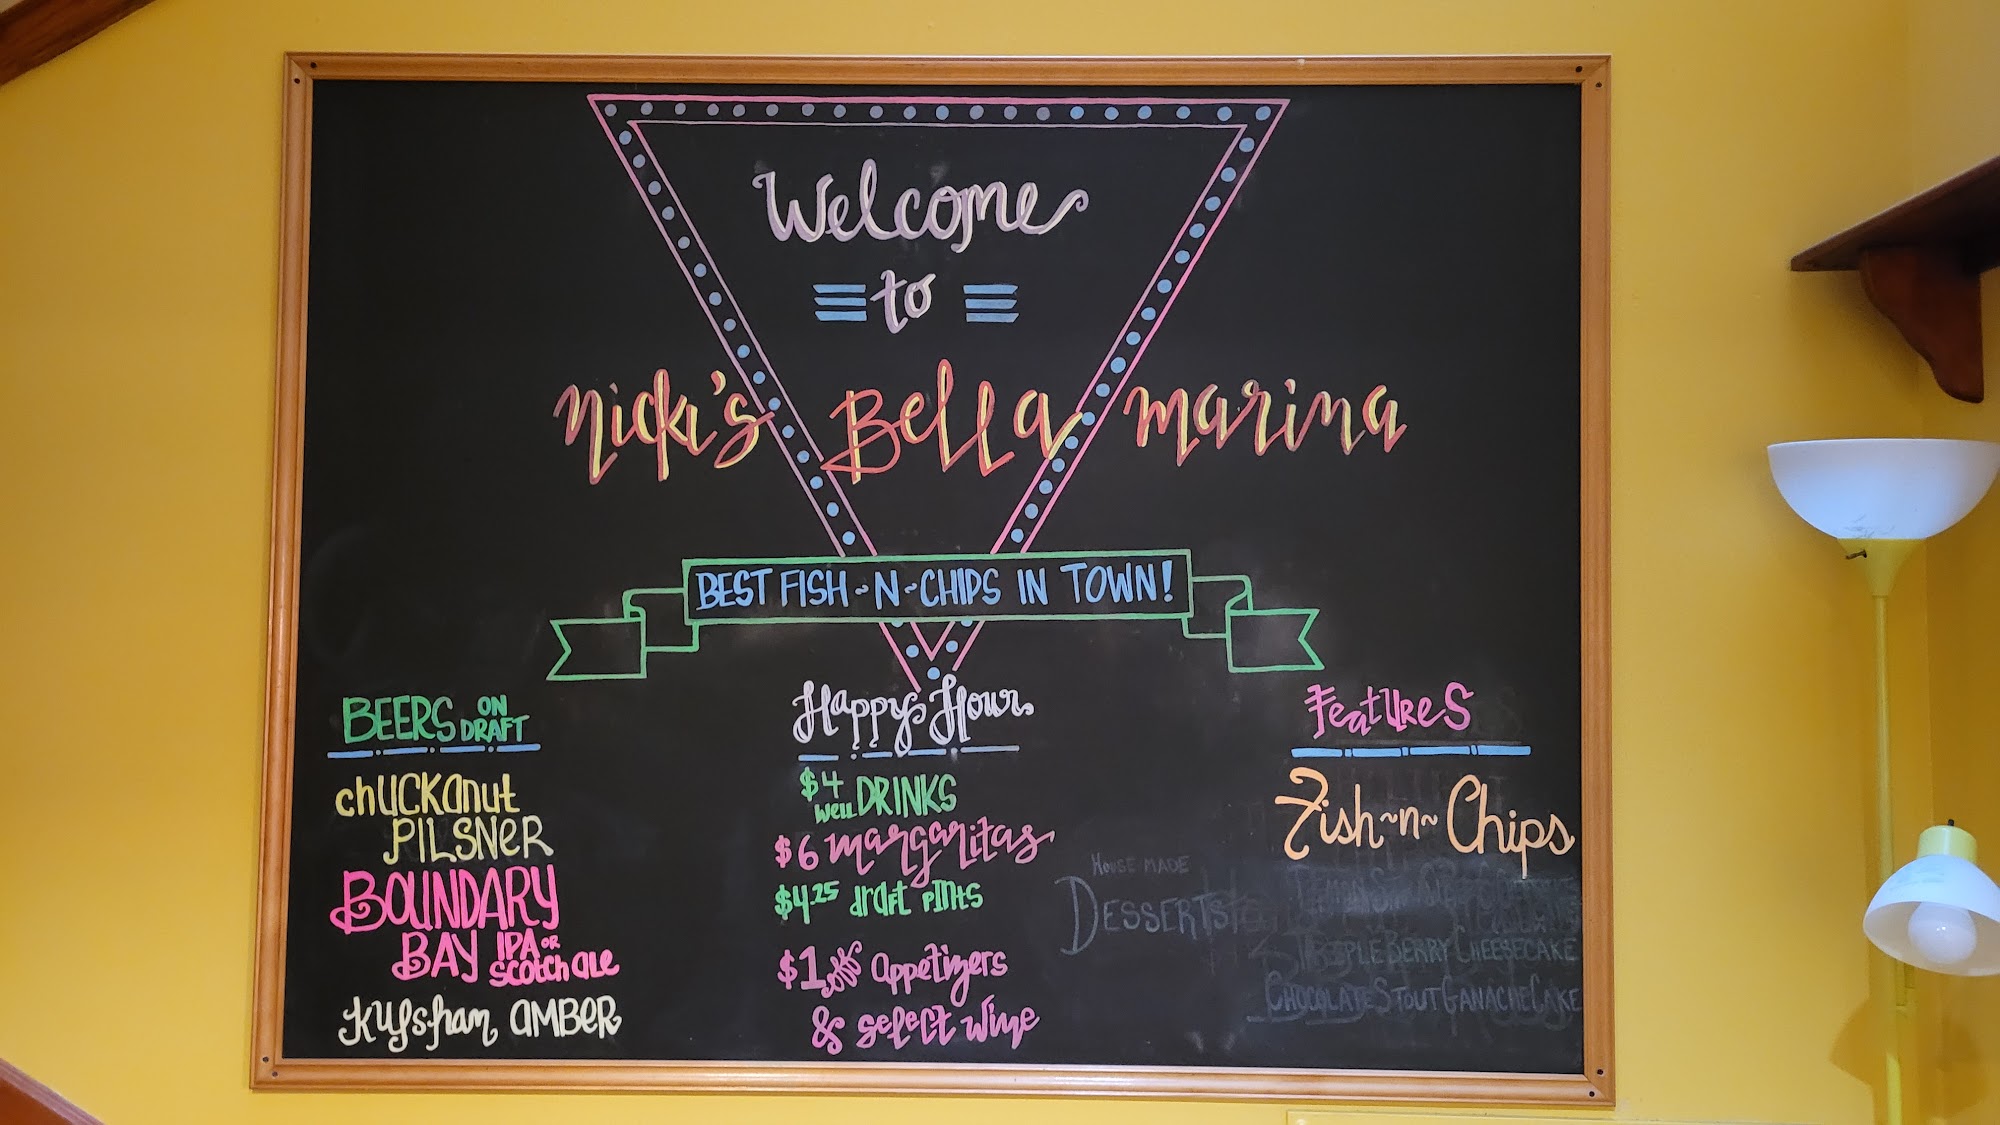 Welcome
to
Nicki's Bella Marina
BEST FISH~N~CHIPS IN TOWN!
BEERS ON DRAFT
Chuckanut
PILSNER
BOUNDARY
BAY IPA or Scotch ale
Kulshan AMBER
Happy Hour
$4 well DRINKS
$6 margaritas
$4.25 draft pints
$1 off Appetizers
& select wine
Features
Fish~n~Chips
HOUSE MADE
DESSERTS
TRIPLE BERRY CHEESECAKE
CHOCOLATE STOUT GANACHE CAKE